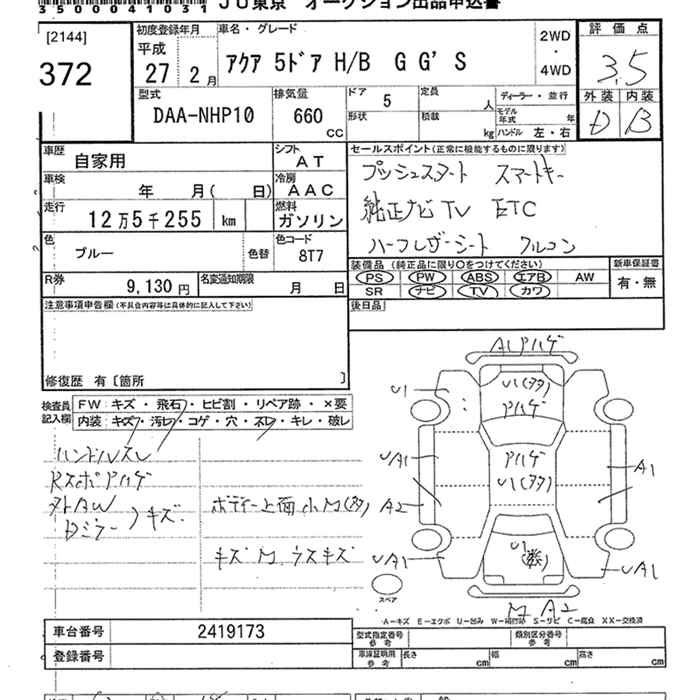 3500041031 JU東京 オークション出品申込書
[2144]
372
初度登録年月
平成
27 2月
車名・グレード
アクア 5ドア H/B G G'S
2WD
・
4WD
評価点
3.5
外装 内装
D B
型式
DAA-NHP10
排気量
660
CC
ドア 5
形状
定員 人
積載 kg
ディーラー・並行
モデル年式 年
ハンドル 左・右
車歴
自家用
シフト
AT
車検
年 月( 日)
冷房
AAC
走行
12万5千255 km
燃料
ガソリン
色
ブルー
色替
色コード
8T7
R券
9,130円
名変通知期限
月 日
セールスポイント(正常に機能するものに限ります)
プッシュスタート スマートキー
純正ナビ TV ETC
ハーフレザーシート クルコン
装備品(純正品に限り○をつけてください)
PS PW ABS エアB AW
SR ナビ TV カワ
新車保証書
有・無
後日品
注意事項申告欄(不具合内容等は具体的に記入して下さい)
修復歴 有〔箇所 〕
検査員記入欄
FW:キズ・飛石・ヒビ割・リペア跡・×要
内装:キズ・汚レ・コゲ・穴・スレ・キレ・破レ
ハンドルスレ
Rスポアハゲ
外AW
Dミラー
キズ
ボディー上面小M(多)
キズM ウスキズ
A1アハゲ
U1
U1(多)
アハゲ
アハゲ
U1(多)
UA1
A2
A1
UA1
U1
UA1
M A2
スペア
A-キズ E-エクボ U-凹み W-補修跡 S-サビ C-腐食 XX-交換済
車台番号
2419173
登録番号
型式指定番号
参考
類別区分番号
参考
車庫証明用
参考
長さ cm
幅 cm
高さ cm